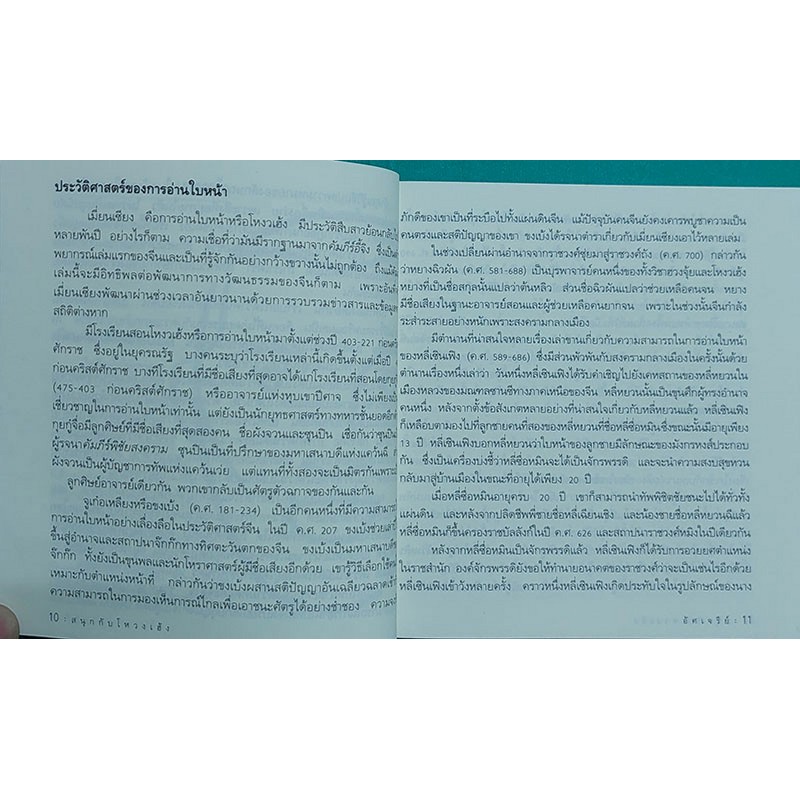 ประวัติศาสตร์ของการอ่านใบหน้า
เมี่ยนเซียง คือการอ่านใบหน้าหรือโหงวเฮ้ง มีประวัติสืบสาวย้อนกลับไป
หลายพันปี อย่างไรก็ตาม ความเชื่อที่ว่ามันมีรากฐานมาจากคัมภีร์อี้จิง ซึ่งเป็น
พยากรณ์เล่มแรกของจีนและเป็นที่รู้จักกันอย่างกว้างขวางนั้นไม่ถูกต้อง ถึงแม้
เล่มนี้จะมีอิทธิพลต่อพัฒนาการทางวัฒนธรรมของจีนก็ตาม เพราะอันที่
เมี่ยนเซียงพัฒนาผ่านช่วงเวลาอันยาวนานด้วยการรวบรวมข่าวสารและข้อมูล
สถิติต่างหาก
มีโรงเรียนสอนโหงวเฮ้งหรือการอ่านใบหน้ามาตั้งแต่ช่วงปี 403-221 ก่อนคริ
ศักราช ซึ่งอยู่ในยุครณรัฐ บางคนระบุว่าโรงเรียนเหล่านี้เกิดขึ้นตั้งแต่เมื่อปี
ก่อนคริสต์ศักราช บางทีโรงเรียนที่มีชื่อเสียงที่สุดอาจได้แก่โรงเรียนที่สอนโดยกุย
(475-403 ก่อนคริสต์ศักราช) หรืออาจารย์แห่งหุบเขาปีศาจ ซึ่งไม่เพียง
เชี่ยวชาญในการอ่านใบหน้าเท่านั้น แต่ยังเป็นนักยุทธศาสตร์ทางทหารชั้นยอดอีก
กุยกู่จื่อมีลูกศิษย์ที่มีชื่อเสียงที่สุดสองคน ชื่อผังจวนและซุนปิน เชื่อกันว่าซุนปิน
ผู้รจนาคัมภีร์พิชัยสงคราม ซุนปินเป็นที่ปรึกษาของมหาเสนาบดีแห่งแคว้นฉี
ผังจวนเป็นผู้บัญชาการทัพแห่งแคว้นเว่ย แต่แทนที่ทั้งสองจะเป็นมิตรกันเพราะ
ลูกศิษย์อาจารย์เดียวกัน พวกเขากลับเป็นศัตรูตัวฉกาจของกันและกัน
จูเก่อเหลียงหรือขงเบ้ง (ค.ศ. 181-234) เป็นอีกคนหนึ่งที่มีความสามารถ
การอ่านใบหน้าอย่างเลื่องลือในประวัติศาสตร์จีน ในปี ค.ศ. 207 ขงเบ้งช่วย
ขึ้นสู่อำนาจและสถาปนาจ๊กก๊กทางทิศตะวันตกของจีน ขงเบ้งเป็นมหาเสนาบดี
จ๊กก๊ก ทั้งยังเป็นขุนพลและนักโหราศาสตร์ผู้มีชื่อเสียงอีกด้วย เขารู้วิธีเลือกใช้คน
เหมาะกับตำแหน่งหน้าที่ กล่าวกันว่าขงเบ้งผสานสติปัญญาอันเฉลียวฉลาดเข้า
ความสามารถในการมองเห็นการณ์ไกลเพื่อเอาชนะศัตรูได้อย่างช่ำชอง ความจง
10 : สนุกกับโหวงเฮ้ง
ภักดีของเขาเป็นที่ระบือไปทั้งแผ่นดินจีน แม้ปัจจุบันคนจีนยังคงเคารพบูชาความเป็น
คนตรงและสติปัญญาของเขา ขงเบ้งได้รจนาตำราเกี่ยวกับเมี่ยนเซียงเอาไว้หลายเล่ม
ในช่วงเปลี่ยนผ่านอำนาจจากราชวงศ์ซุ่ยมาสู่ราชวงศ์ถัง (ค.ศ. 700) กล่าวกัน
ว่าหยางฉิวผัน (ค.ศ. 581-688) เป็นบุรพาจารย์คนหนึ่งของทั้งวิชาฮวงจุ้ยและโหงวเฮ้ง
หยางที่เป็นชื่อสกุลนั้นแปลว่าต้นหลิว ส่วนชื่อฉิวผันแปลว่าช่วยเหลือคนจน หยาง
มีชื่อเสียงในฐานะอาจารย์สอนและผู้ช่วยเหลือคนยากจน เพราะในช่วงนั้นจีนกำลัง
ระส่ำระสายอย่างหนักเพราะสงครามกลางเมือง
มีตำนานที่น่าสนใจหลายเรื่องเล่าขานเกี่ยวกับความสามารถในการอ่านใบหน้า
ของหลี่เซินเฟิง (ค.ศ. 589-686) ซึ่งมีส่วนพัวพันกับสงครามกลางเมืองในครั้งนั้นด้วย
ตำนานเรื่องหนึ่งเล่าว่า วันหนึ่งหลี่เซินเฟิงได้รับคำเชิญไปยังเคหสถานของหลี่หยวนใน
เมืองหลวงของมณฑลซานซีทางภาคเหนือของจีน หลี่หยวนนั้นเป็นขุนศึกผู้ทรงอำนาจ
คนหนึ่ง หลังจากตั้งข้อสังเกตหลายอย่างที่น่าสนใจเกี่ยวกับหลี่หยวนแล้ว หลี่เซินเฟิง
ก็เหลือบตามองไปที่ลูกชายคนที่สองของหลี่หยวนที่ชื่อหลี่ซื่อหมินซึ่งขณะนั้นมีอายุเพียง
13 ปี หลี่เซินเฟิงบอกหลี่หยวนว่าใบหน้าของลูกชายมีลักษณะของมังกรหงส์ประกอบ
กัน ซึ่งเป็นเครื่องบ่งชี้ว่าหลี่ซื่อหมินจะได้เป็นจักรพรรดิ และจะนำความสงบสุขหวน
กลับมาสู่บ้านเมืองในขณะที่อายุได้เพียง 20 ปี
เมื่อหลี่ซื่อหมินอายุครบ 20 ปี เขาก็สามารถนำทัพพิชิตชัยชนะไปได้ทั่วทั้ง
แผ่นดิน และหลังจากปลิดชีพพี่ชายชื่อหลี่เฉียนเชิง และน้องชายชื่อหลี่หยวนฉีแล้ว
หลี่ซื่อหมินก็ขึ้นครองราชบัลลังก์ในปี ค.ศ. 626 และสถาปนาราชวงศ์หมิงในปีเดียวกัน
หลังจากหลี่ซื่อหมินเป็นจักรพรรดิแล้ว หลี่เซินเฟิงก็ได้รับการอวยยศตำแหน่ง
ในราชสำนัก องค์จักรพรรดิยังขอให้ทำนายอนาคตของราชวงศ์ว่าจะเป็นเช่นไรอีกด้วย
หลี่เซินเฟิงเข้าวังหลายครั้ง คราวหนึ่งหลี่เซินเฟิงเกิดประทับใจในรูปลักษณ์ของนาง
อัศเจรีย์ : 11